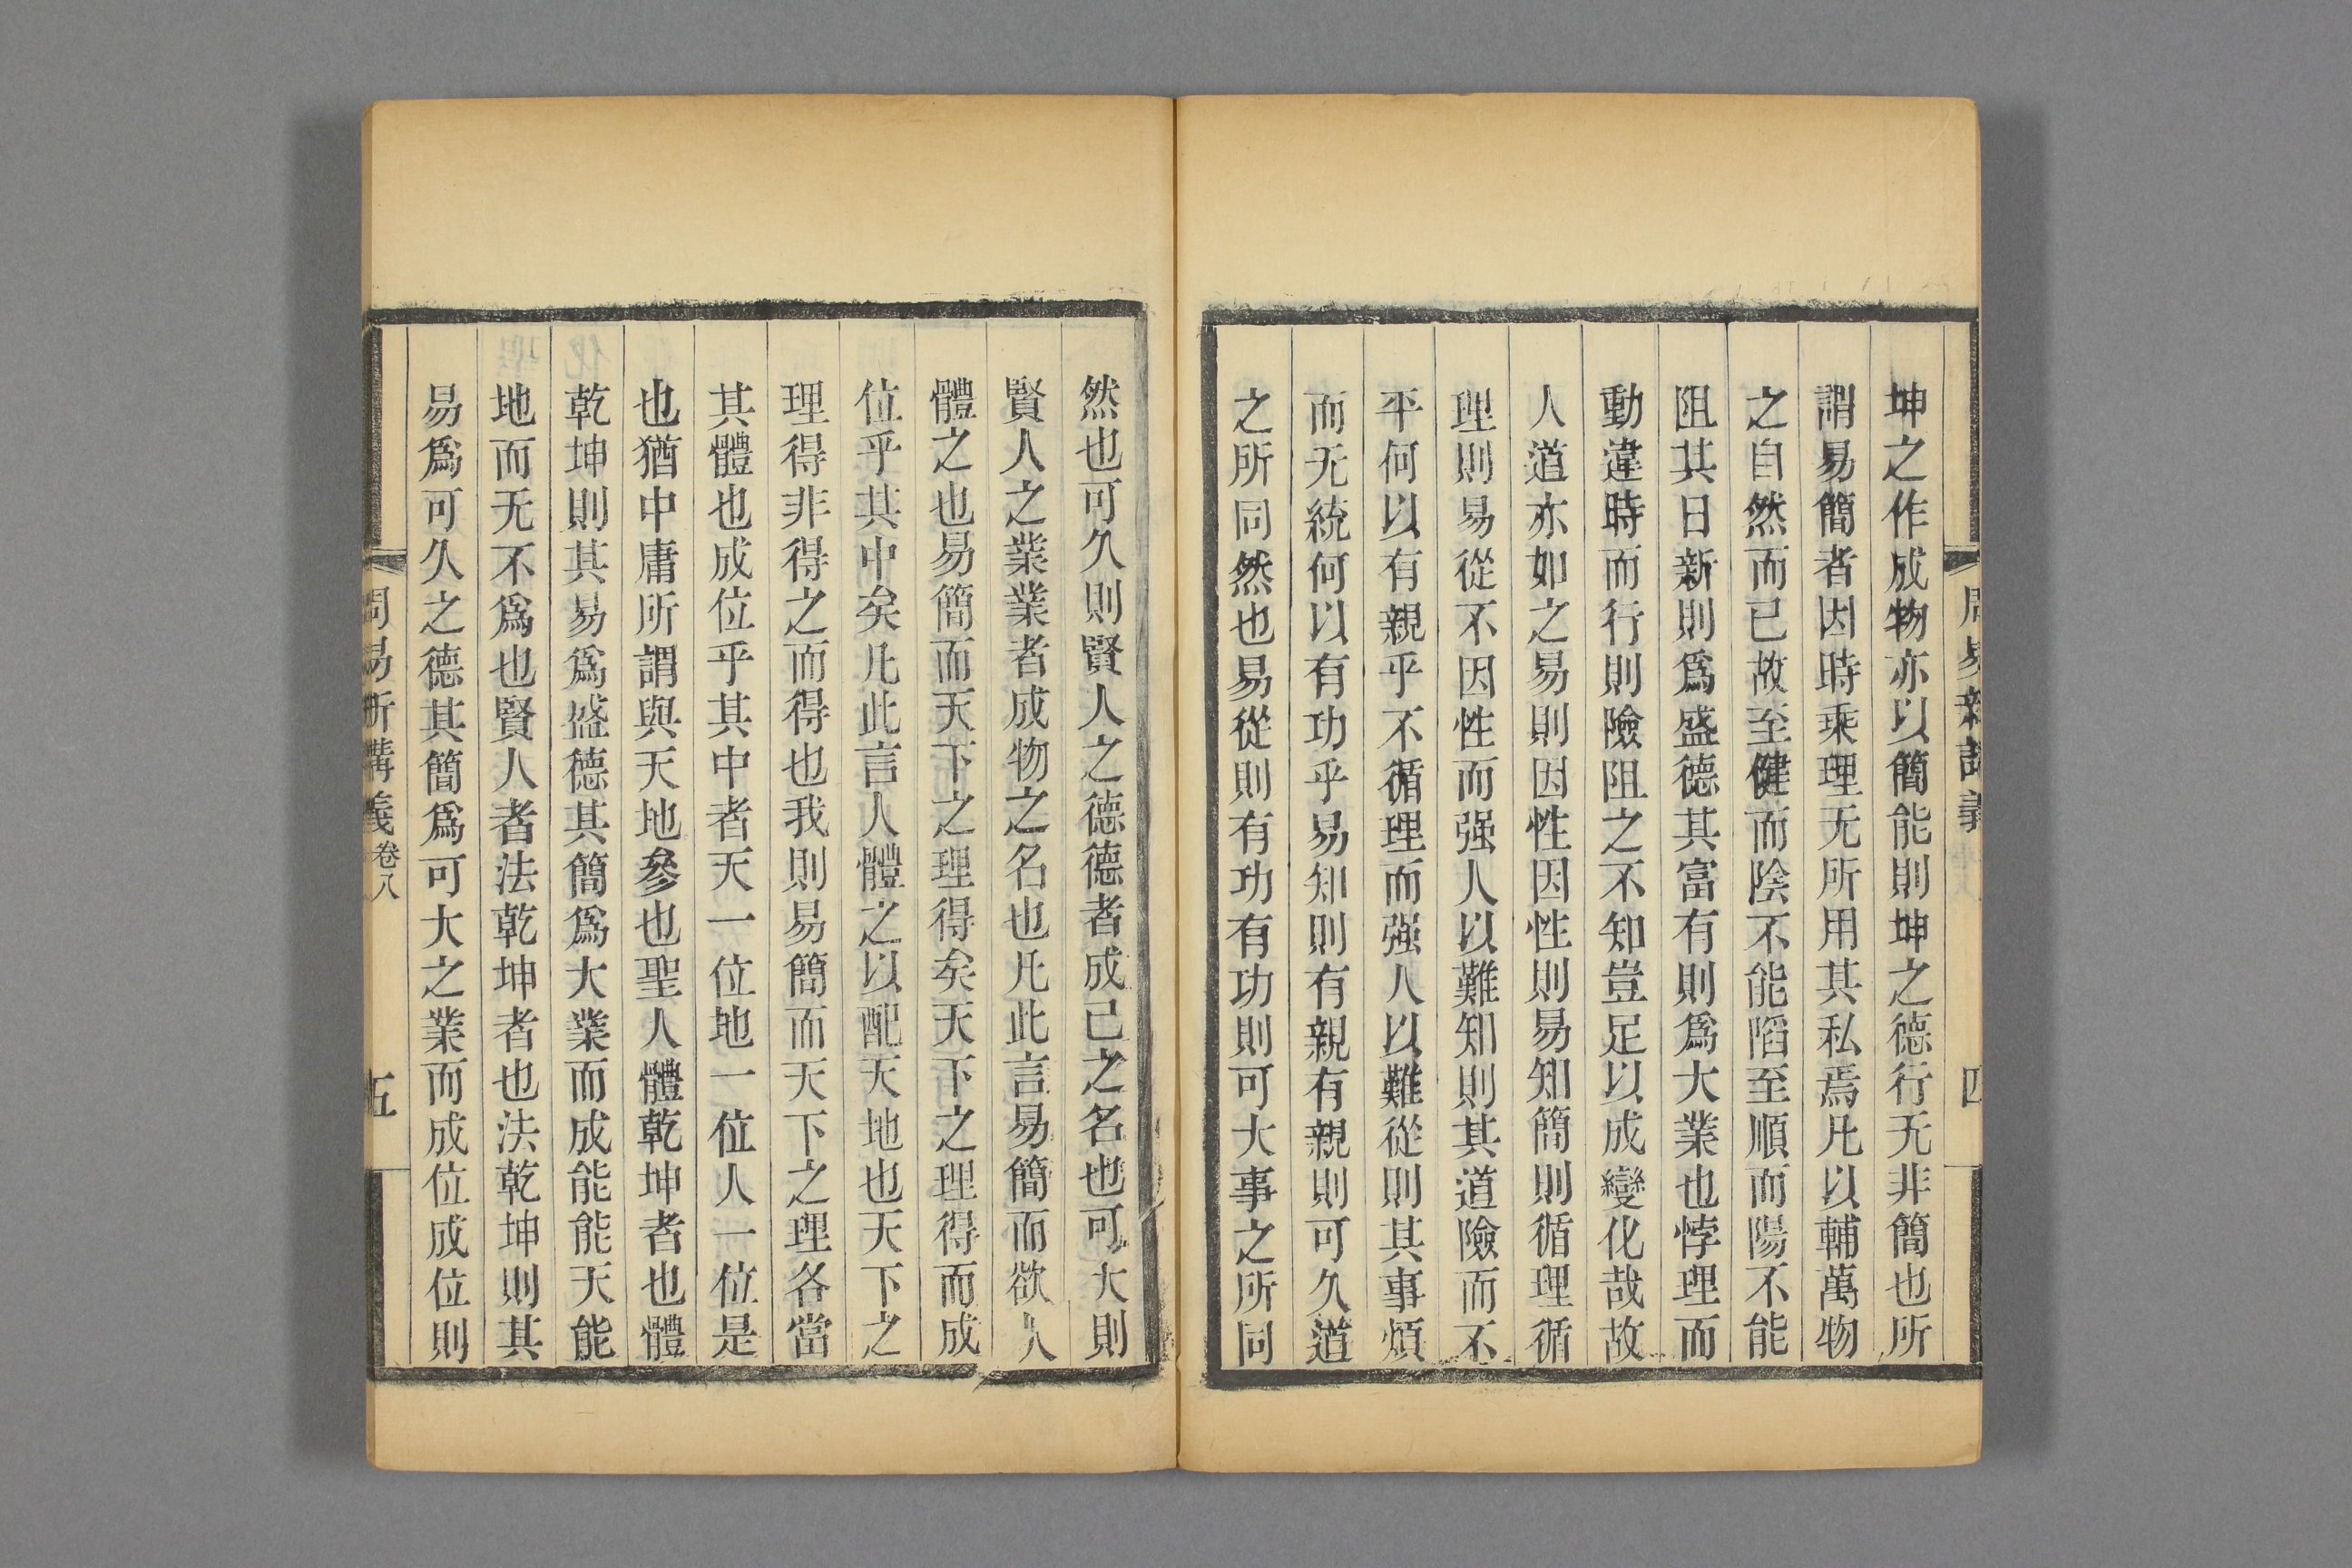 坤之作成物亦以簡能則坤之德行无非簡也所
謂易簡者因時乘理无所用其私焉凡以輔萬物
之自然而已故至健而陰不能陷至順而陽不能
阻其日新則爲盛德其富有則爲大業也悖理而
動違時而行則險阻之不知豈足以成變化哉故
人道亦如之易則因性因性則易知簡則循理循
理則易從不因性而强人以難知則其道險而不
平何以有親乎不循理而强人以難從則其事煩
而无統何以有功乎易知則有親有親則可久道
之所同然也易從則有功有功則可大事之所同
然也可久則賢人之德德者成己之名也可大則
賢人之業業者成物之名也凡此言易簡而欲人
體之也易簡而天下之理得矣天下之理得而成
位乎其中矣凡此言人體之以配天地也天下之
理得非得之而得也我則易簡而天下之理各當
其體也成位乎其中者天一位地一位人一位是
也猶中庸所謂與天地參也聖人體乾坤者也體
乾坤則其易爲盛德其簡爲大業而成能能天能
地而无不爲也賢人者法乾坤者也法乾坤則其
易爲可久之德其簡爲可大之業而成位成位則
周易新講義卷八
五